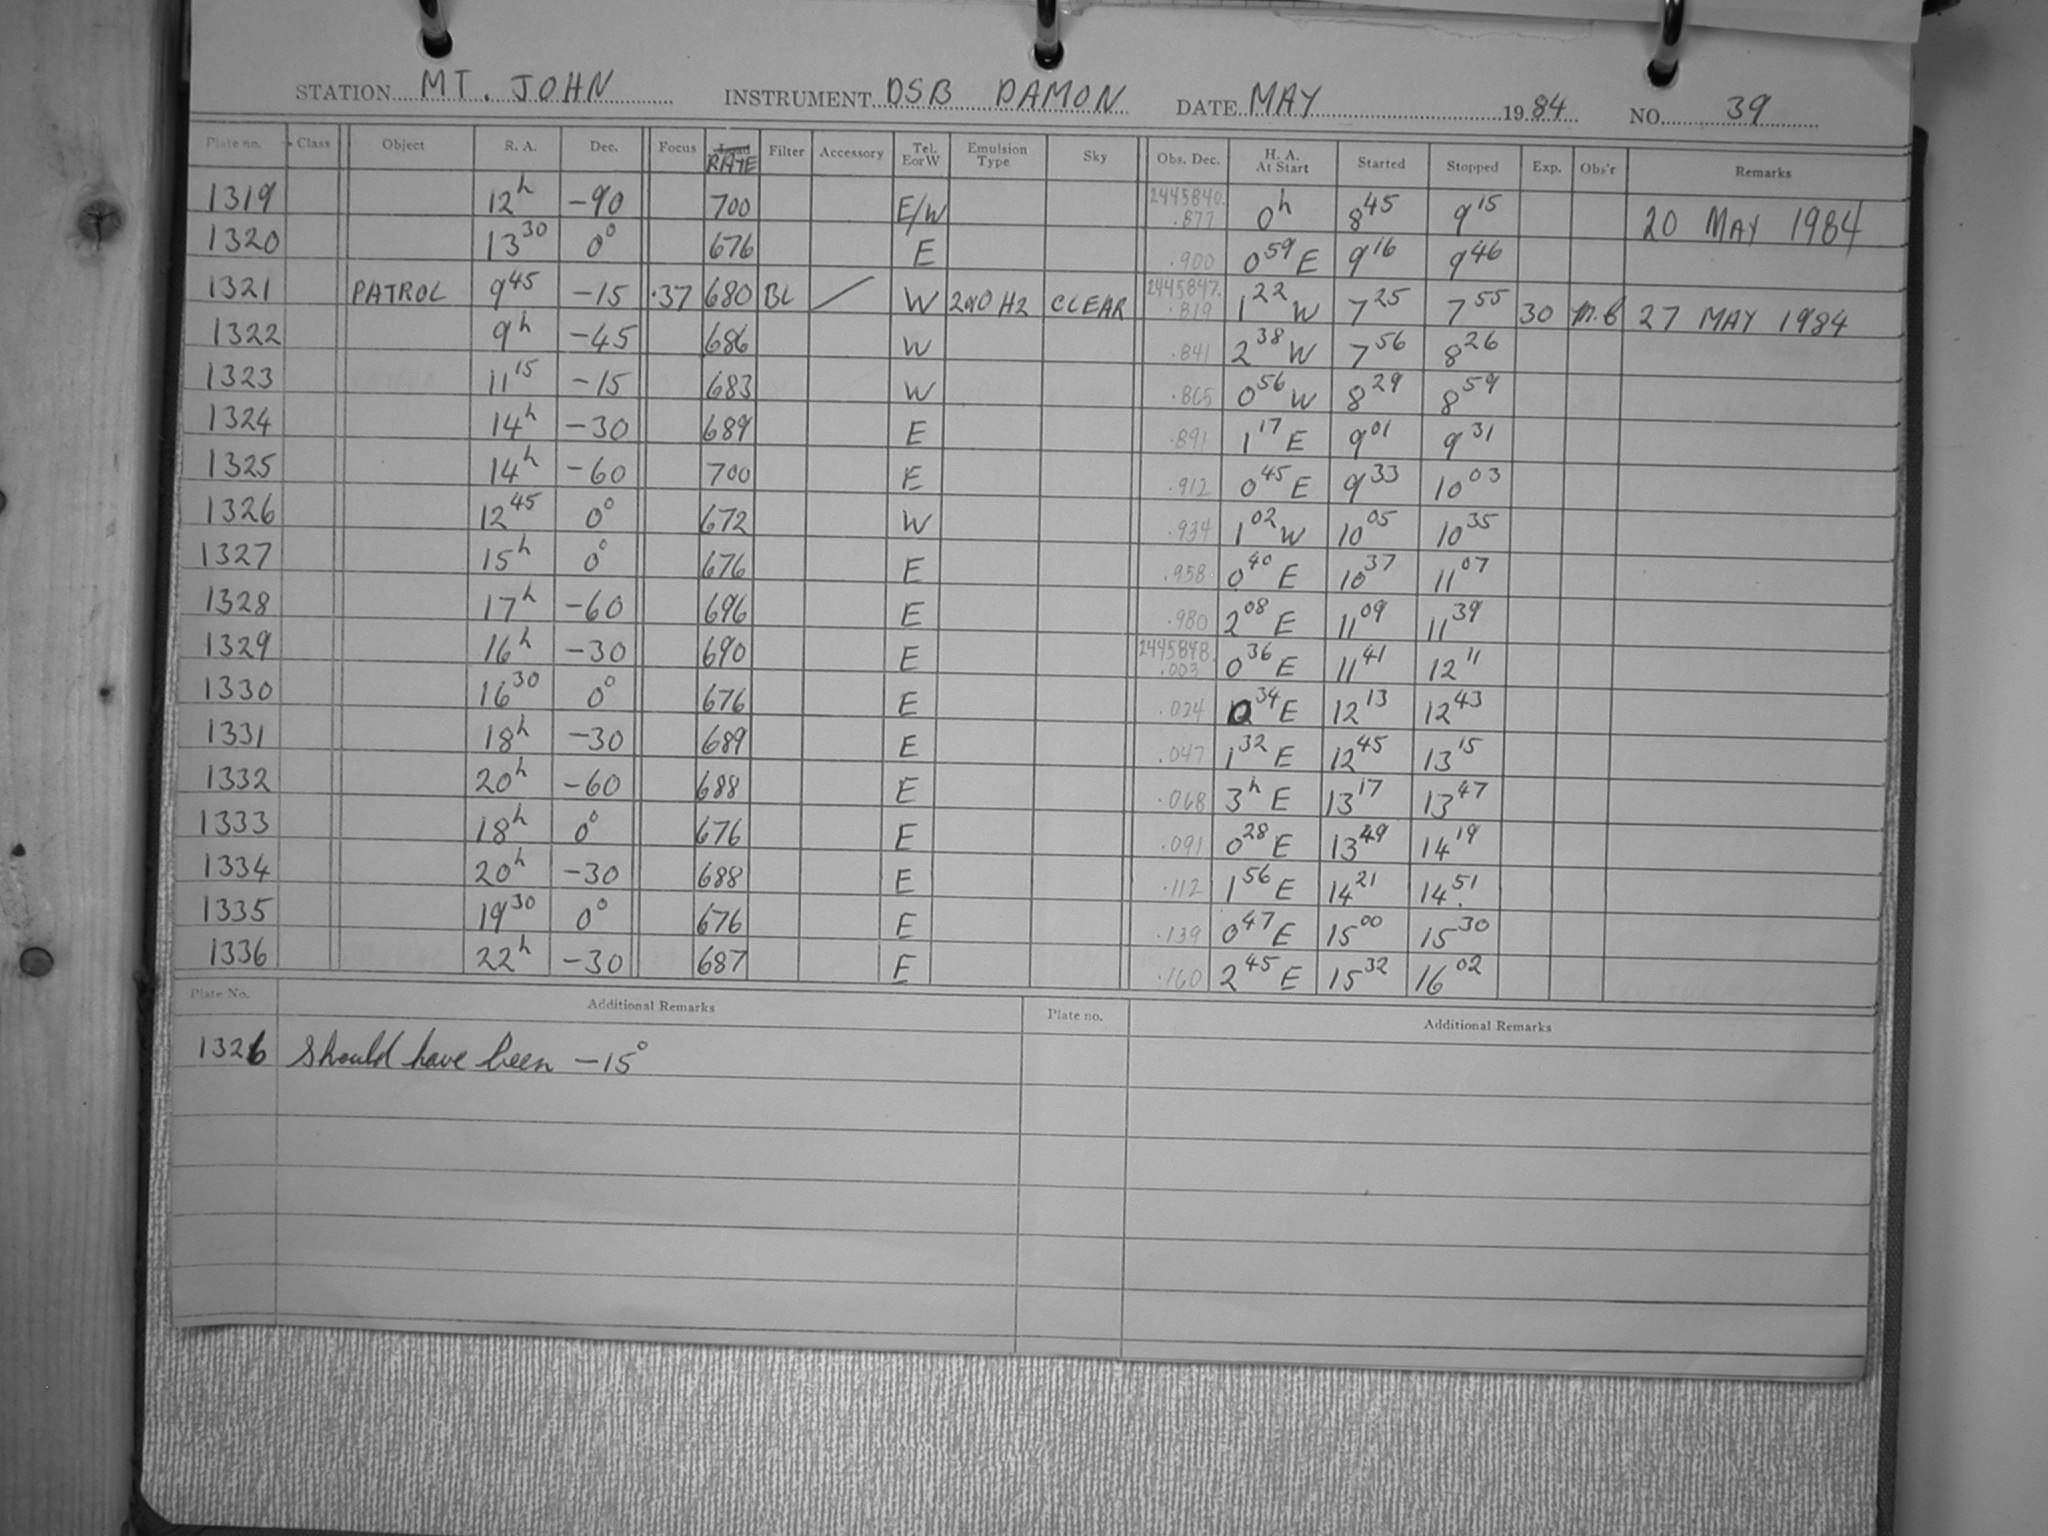 STATION MT. JOHN INSTRUMENT DSB DAMON DATE MAY 1984 NO. 39
Plate no. Class Object R. A. Dec. Focus RATE Filter Accessory Tel. E or W Emulsion Type Sky Obs. Dec. H. A. At Start Started Stopped Exp. Obs'r Remarks
1319 12h -90 700 E/W 2445840. .877 0h 8 45 9 15 20 MAY 1984
1320 13 30 0° 676 E .900 0 59 E 9 16 9 46
1321 PATROL 9 45 -15 .37 680 BL / W 2a0 H2 CLEAR 2445847. .819 1 22 W 7 25 7 55 30 M.B 27 MAY 1984
1322 9h -45 686 W .841 2 38 W 7 56 8 26
1323 11 15 -15 683 W .865 0 56 W 8 29 8 59
1324 14h -30 689 E .891 1 17 E 9 01 9 31
1325 14h -60 700 E .912 0 45 E 9 33 10 03
1326 12 45 0° 672 W .934 1 02 W 10 05 10 35
1327 15h 0° 676 E .958 0 40 E 10 37 11 07
1328 17h -60 696 E .980 2 08 E 11 09 11 39
1329 16h -30 690 E 2445848. .003 0 36 E 11 41 12 11
1330 16 30 0° 676 E .024 0 34 E 12 13 12 43
1331 18h -30 689 E .047 1 32 E 12 45 13 15
1332 20h -60 688 E .068 3h E 13 17 13 47
1333 18h 0° 676 E .091 0 28 E 13 49 14 19
1334 20h -30 688 E .112 1 56 E 14 21 14 51
1335 19 30 0° 676 E .139 0 47 E 15 00 15 30
1336 22h -30 687 E .160 2 45 E 15 32 16 02
Plate No. Additional Remarks Plate no. Additional Remarks
1326 Should have been -15°